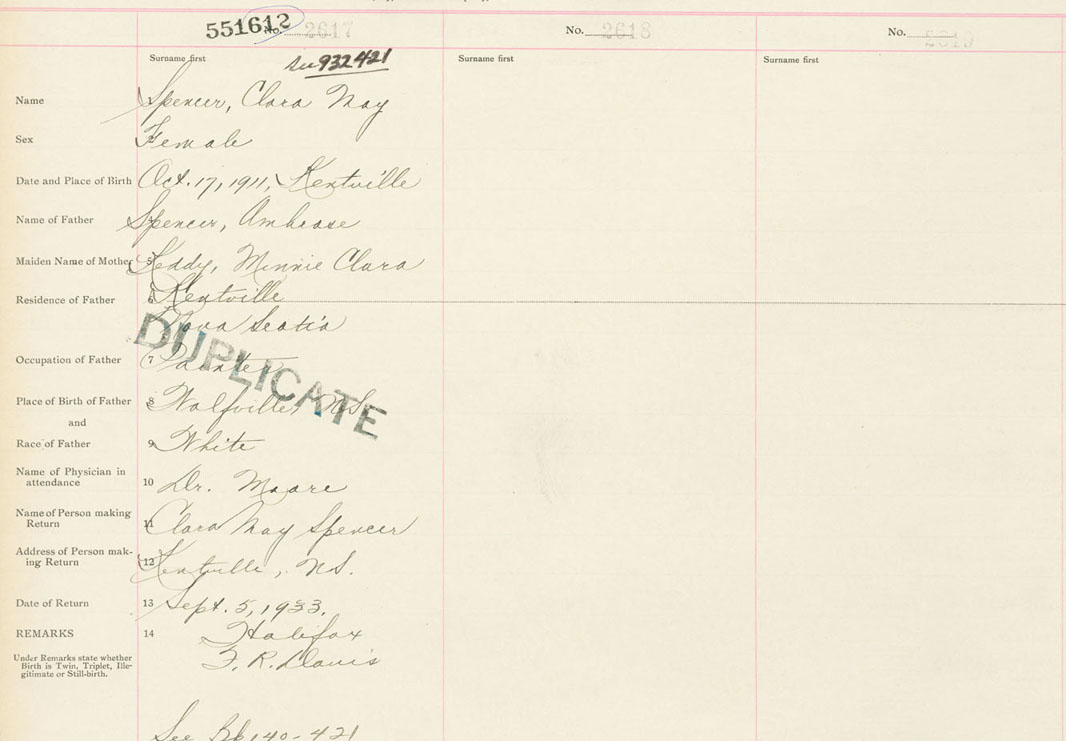 551612 No. 2617 No. 2618 No. 2619
Surname first see 932421 Surname first Surname first
Name Spencer, Clara May
Sex Female
Date and Place of Birth Oct. 17, 1911, Kentville
Name of Father Spencer, Ambrose
Maiden Name of Mother 5 Leddy, Minnie Clara
Residence of Father 6 Kentville
Nova Scotia
DUPLICATE
Occupation of Father 7 Painter
Place of Birth of Father 8 Wolfville, N.S.
and
Race of Father 9 White
Name of Physician in
attendance 10 Dr. Moore
Name of Person making
Return 11 Clara May Spencer
Address of Person mak-
ing Return 12 Kentville, N.S.
Date of Return 13 Sept. 5, 1933.
REMARKS 14 Halifax
Under Remarks state whether
Birth is Twin, Triplet, Ille-
gitimate or Still-birth.
F. R. Davis
See Bk 140 - 421